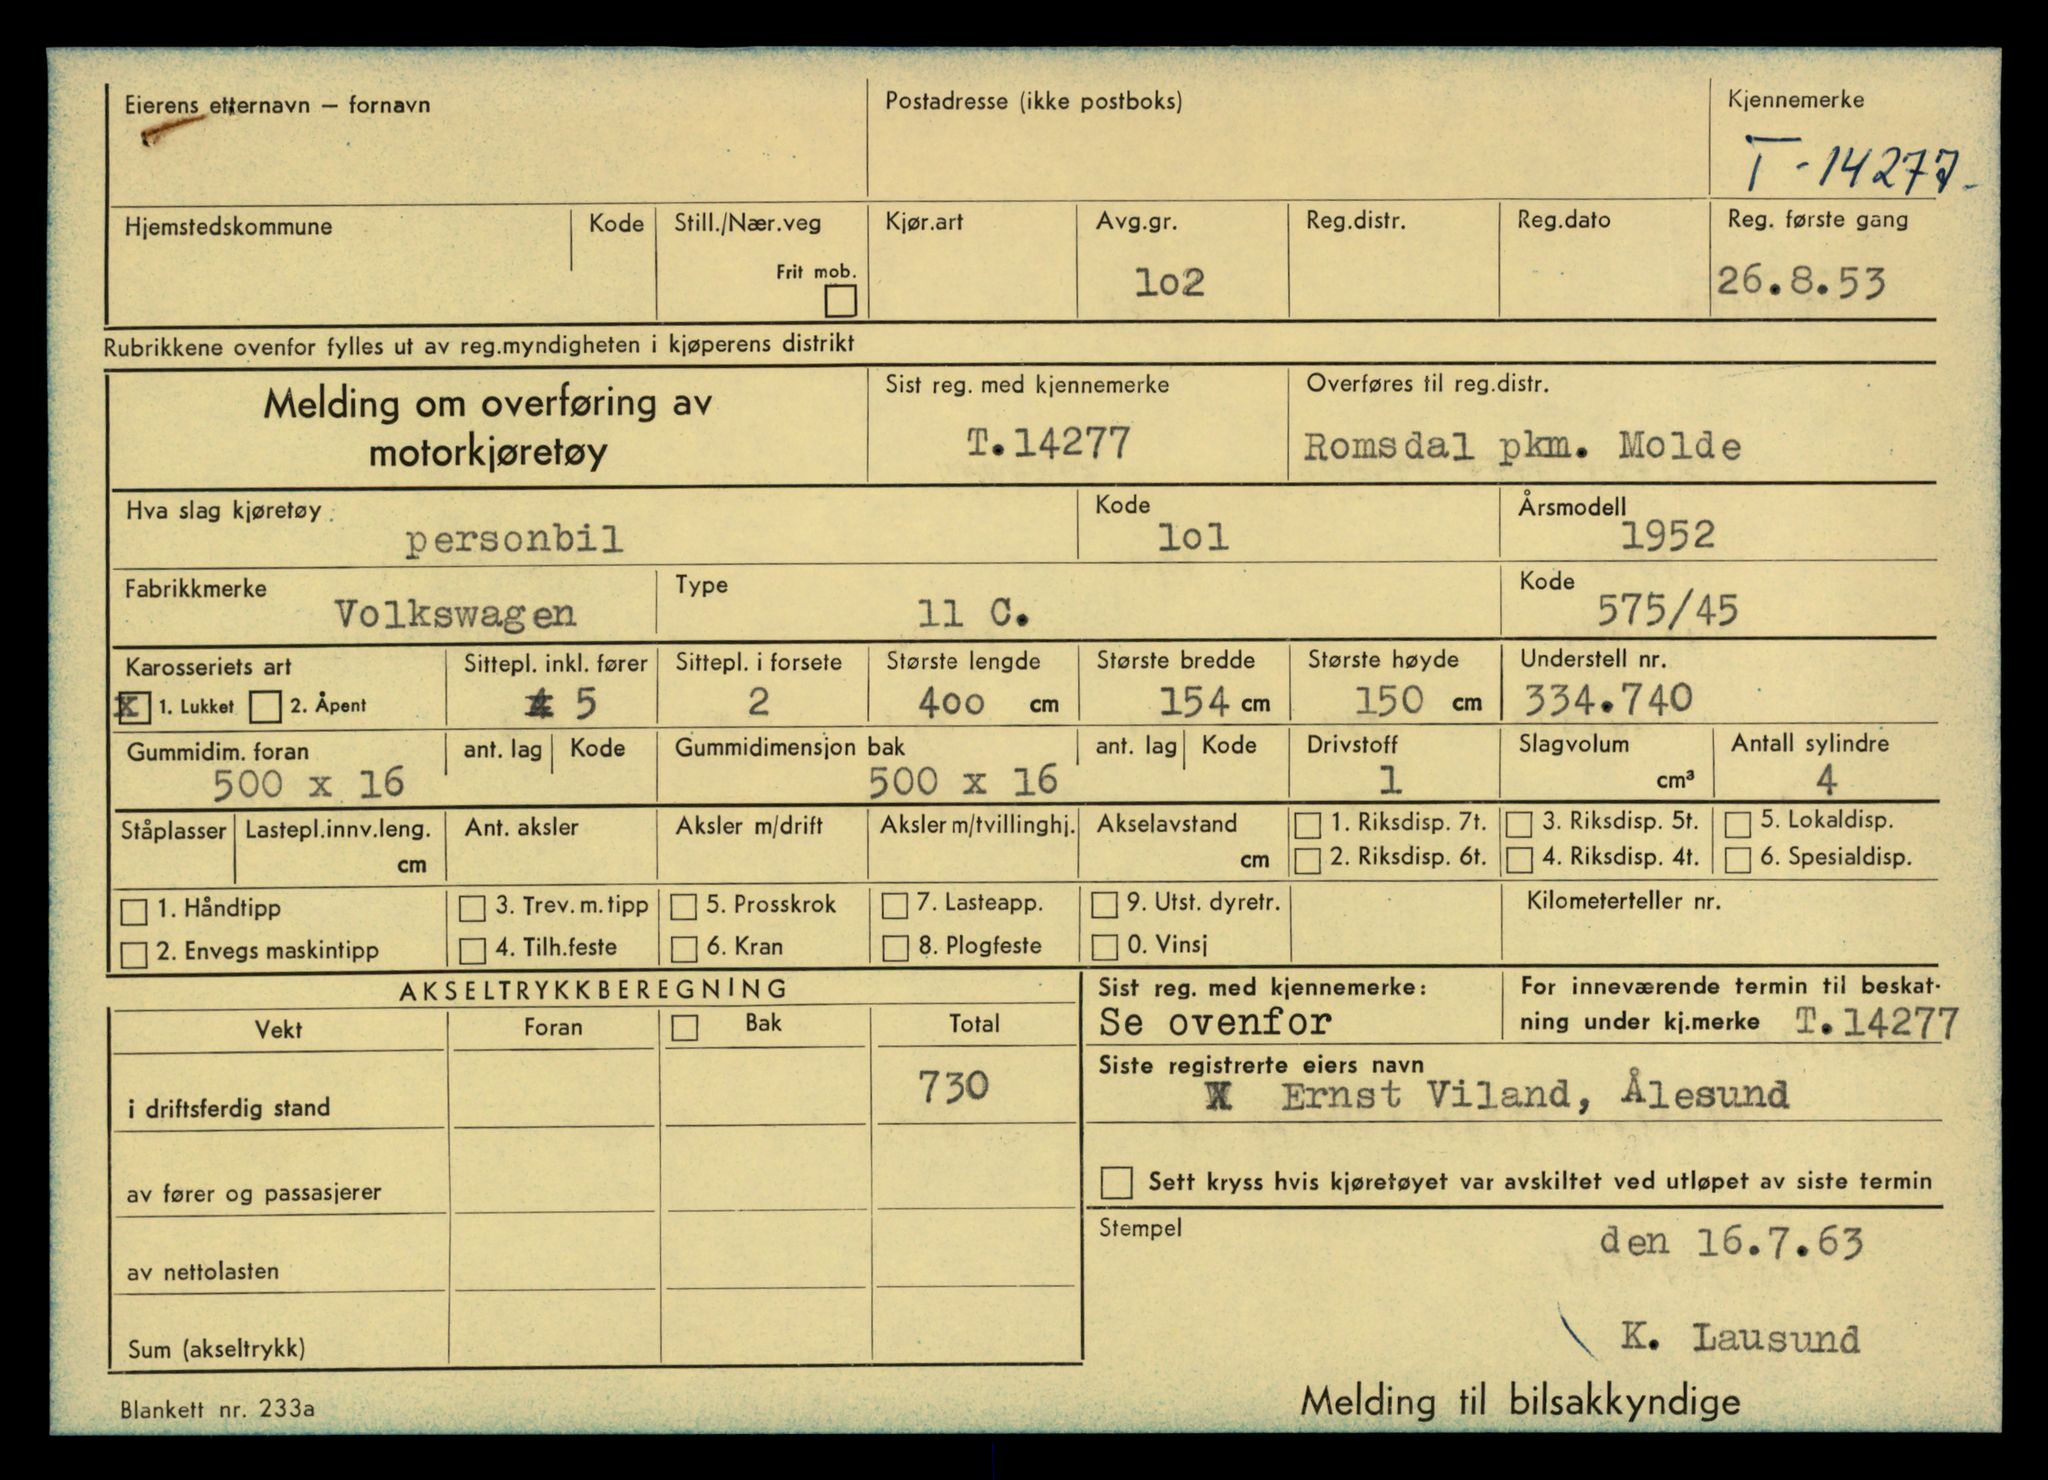 Eierens etternavn – fornavn
Postadresse (ikke postboks)
Kjennemerke
T - 14277-
Hjemstedskommune
Kode
Still./Nær.veg
Frit mob.
Kjør.art
Avg.gr.
1o2
Reg.distr.
Reg.dato
Reg. første gang
26.8.53
Rubrikkene ovenfor fylles ut av reg.myndigheten i kjøperens distrikt
Melding om overføring av
motorkjøretøy
Sist reg. med kjennemerke
T.14277
Overføres til reg.distr.
Romsdal pkm. Molde
Hva slag kjøretøy
personbil
Kode
1o1
Årsmodell
1952
Fabrikkmerke
Volkswagen
Type
11 C.
Kode
575/45
Karosseriets art
X 1. Lukket 2. Åpent
Sittepl. inkl. fører
4 5
Sittepl. i forsete
2
Største lengde
4oo cm
Største bredde
154 cm
Største høyde
150 cm
Understell nr.
334.740
Gummidim. foran
500 x 16
ant. lag
Kode
Gummidimensjon bak
500 x 16
ant. lag
Kode
Drivstoff
1
Slagvolum
cm³
Antall sylindre
4
Ståplasser
Lastepl.innv.leng.
cm
Ant. aksler
Aksler m/drift
Aksler m/tvillinghj.
Akselavstand
cm
1. Riksdisp. 7t.
2. Riksdisp. 6t.
3. Riksdisp. 5t.
4. Riksdisp. 4t.
5. Lokaldisp.
6. Spesialdisp.
1. Håndtipp
2. Envegs maskintipp
3. Trev. m. tipp
4. Tilh.feste
5. Prosskrok
6. Kran
7. Lasteapp.
8. Plogfeste
9. Utst. dyretr.
0. Vinsj
Kilometerteller nr.
AKSELTRYKKBEREGNING
Vekt
Foran
Bak
Total
i driftsferdig stand
730
av fører og passasjerer
av nettolasten
Sum (akseltrykk)
Sist reg. med kjennemerke:
Se ovenfor
For inneværende termin til beskat-
ning under kj.merke T.14277
Siste registrerte eiers navn
X Ernst Viland, Ålesund
Sett kryss hvis kjøretøyet var avskiltet ved utløpet av siste termin
Stempel
den 16.7.63
K. Lausund
Blankett nr. 233a
Melding til bilsakkyndige